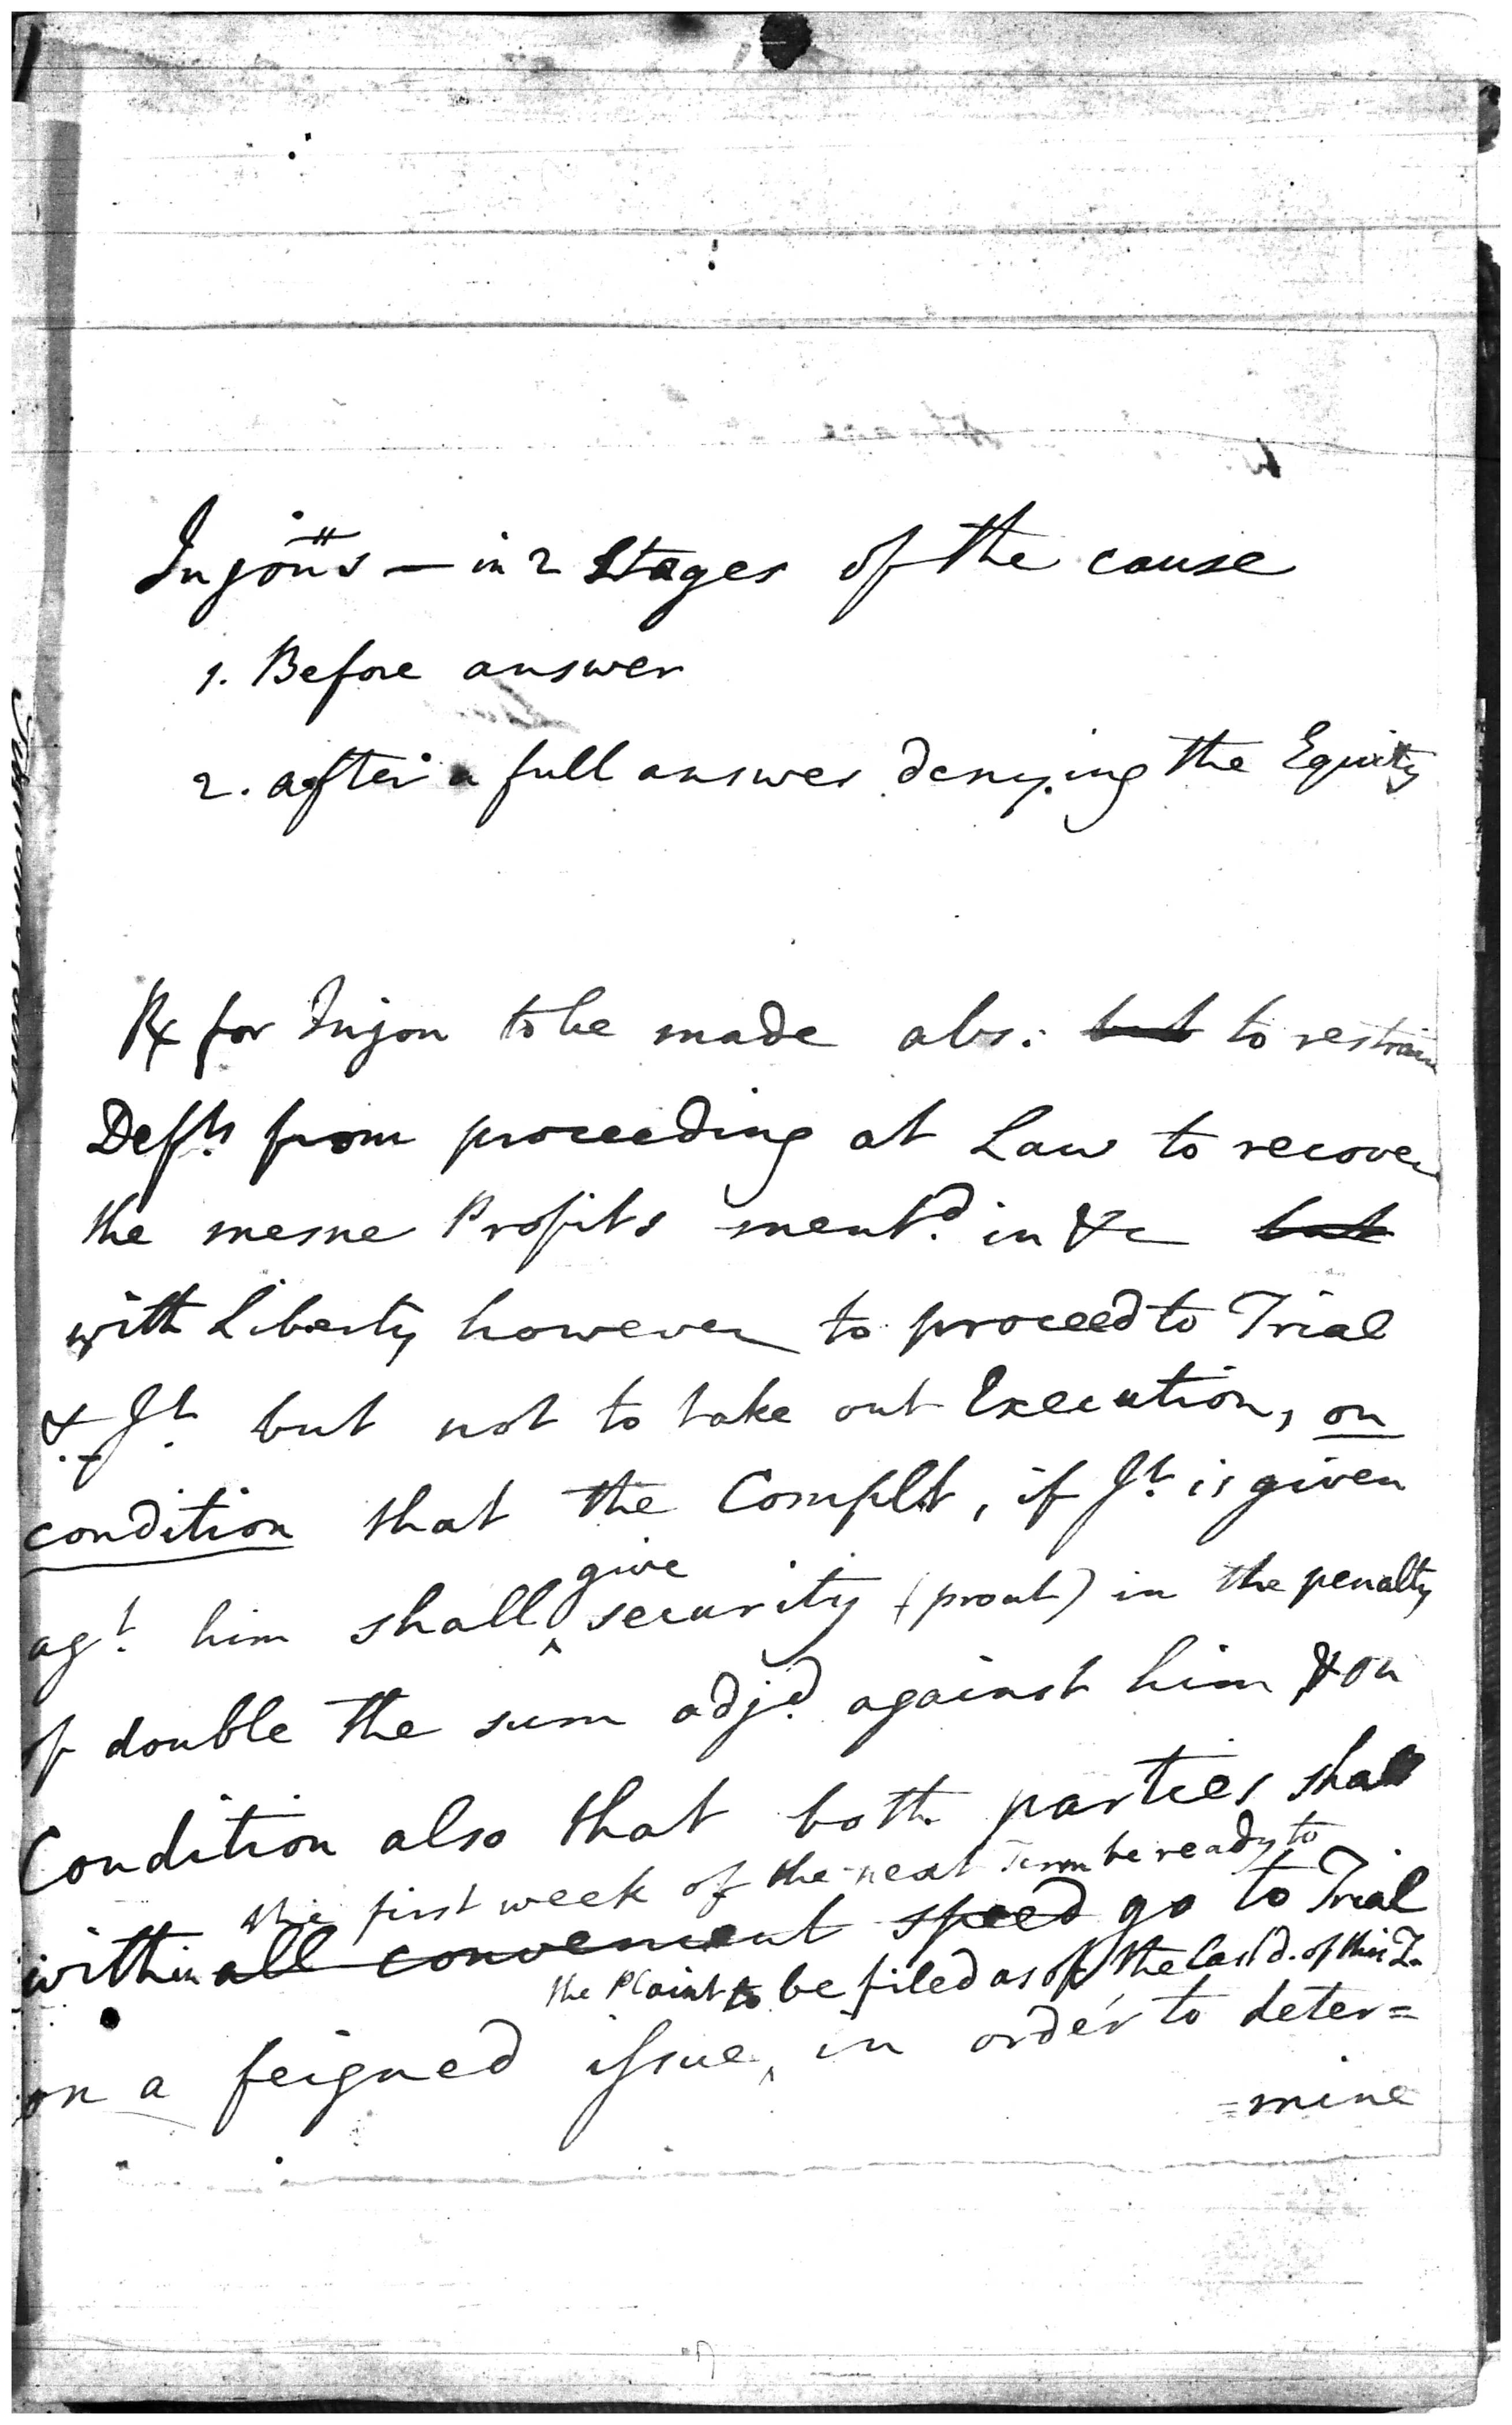 Injons — in 2 Stages of the cause
1. Before answer
2. after a full answer denying the Equity
Rx for Injon to be made abs: but to restrain
Defts from proceeding at Law to recover
the mesne Profits mentd. in &c but
with Liberty however to proceed to Trial
& Jt. but not to take out Execution, on
condition that the Complt, if Jt. is given
give
agt. him shall ^ security (prout) in the penalty
of double the sum adjd. against him & on
Condition also that both parties shall
the first week of the next Term be ready to
within all convenient speed go to Trial
the Plaint to be filed as of the last d. of this T.
on a feigned issue, ^ in order to deter=
=mine